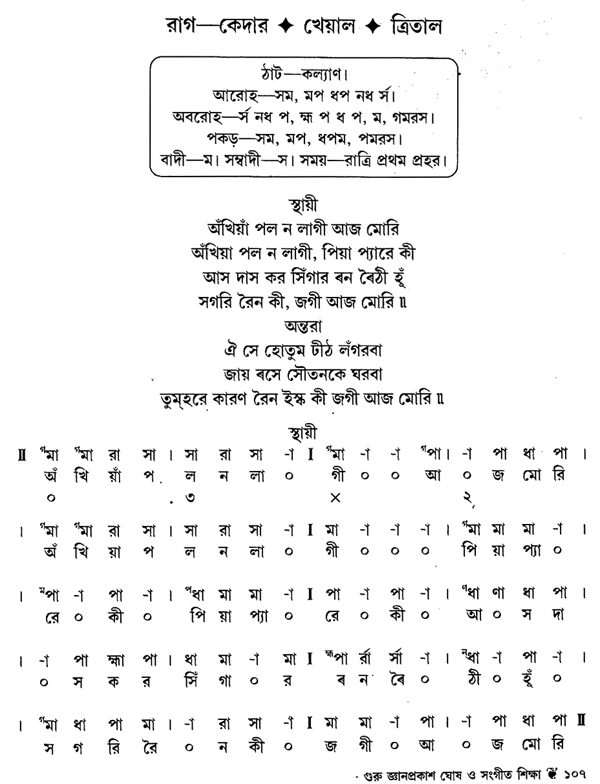 রাগ—কেদার ✦ খেয়াল ✦ ত্রিতাল
ঠাট—কল্যাণ।
আরোহ—সম, মপ ধপ নধ র্স।
অবরোহ—র্স নধ প, হ্ম প ধ প, ম, গমরস।
পকড়—সম, মপ, ধপম, পমরস।
বাদী—ম। সম্বাদী—স। সময়—রাত্রি প্রথম প্রহর।
স্থায়ী
অঁখিয়াঁ পল ন লাগী আজ মোরি
অঁখিয়া পল ন লাগী, পিয়া প্যারে কী
আস দাস কর সিঁগার ৰন ৰৈঠী হূঁ
সগরি রৈন কী, জগী আজ মোরি॥
অন্তরা
ঐ সে হোতুম ঢীঠ লঁগরবা
জায় ৰসে সৌতনকে ঘরবা
তুম্‌হরে কারণ রৈন ইস্ক কী জগী আজ মোরি॥
স্থায়ী
II ᵖমা ᵖমা রা সা । সা রা সা -া I ᵖমা -া -া ᵖপা । -া পা ধা পা ।
অঁ খি য়াঁ প ল ন লা ০ গী ০ ০ আ ০ জ মো রি
০ ৩ × ২
। ᵖমা ᵖমা রা সা । সা রা সা -া I মা -া -া -া । ᵖমা মা মা -া ।
অঁ খি য়া প ল ন লা ০ গী ০ ০ ০ পি য়া প্যা ০
। ᵐপা -া পা -া । ᵖধা মা মা -া I পা -া পা -া । ᵖধা ণা ধা পা ।
রে ০ কী ০ পি য়া প্যা ০ রে ০ কী ০ আ ০ স দা
। -া পা হ্মা পা । ধা মা -া মা I ʰᵐপা র্রা র্সা -া । ⁿধা -া পা -া ।
০ স ক র সিঁ গা ০ র ৰ ন ৰৈ ০ ঠী ০ হূঁ ০
। ᵖমা ধা পা মা । -া রা সা -া I মা মা -া পা । -া পা ধা পা II
স গ রি রৈ ০ ন কী ০ জ গী ০ আ ০ জ মো রি
গুরু জ্ঞানপ্রকাশ ঘোষ ও সংগীত শিক্ষা ❦ ১০৭